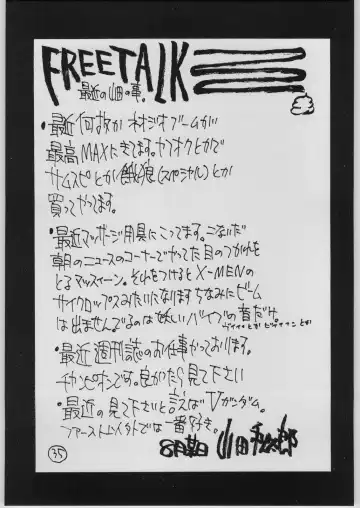 FREETALK
最近の山田の事。
・最近何故かネオジオブームが
最高MAXにきてます。ヤフオクとかで
サムスピとか餓狼(スペシャル)とか
買ってやってます。
・最近マッサージ用具にこってます。こないだ
朝のニュースのコーナーでやってた目のつかれを
とるマッスィーン。それをつけると X-MENの
サイクロップスみたいになります ちなみにビーム
は出ませんでるのは妖しいバイブの音だけ。
・最近 週刊誌のお仕事やっております。
チャンピオンです。良かたら見て下さい
・最近の見て下さいと言えばVガンダム。
ファーストムイタトでは一番好き。
8月期日 山田
35